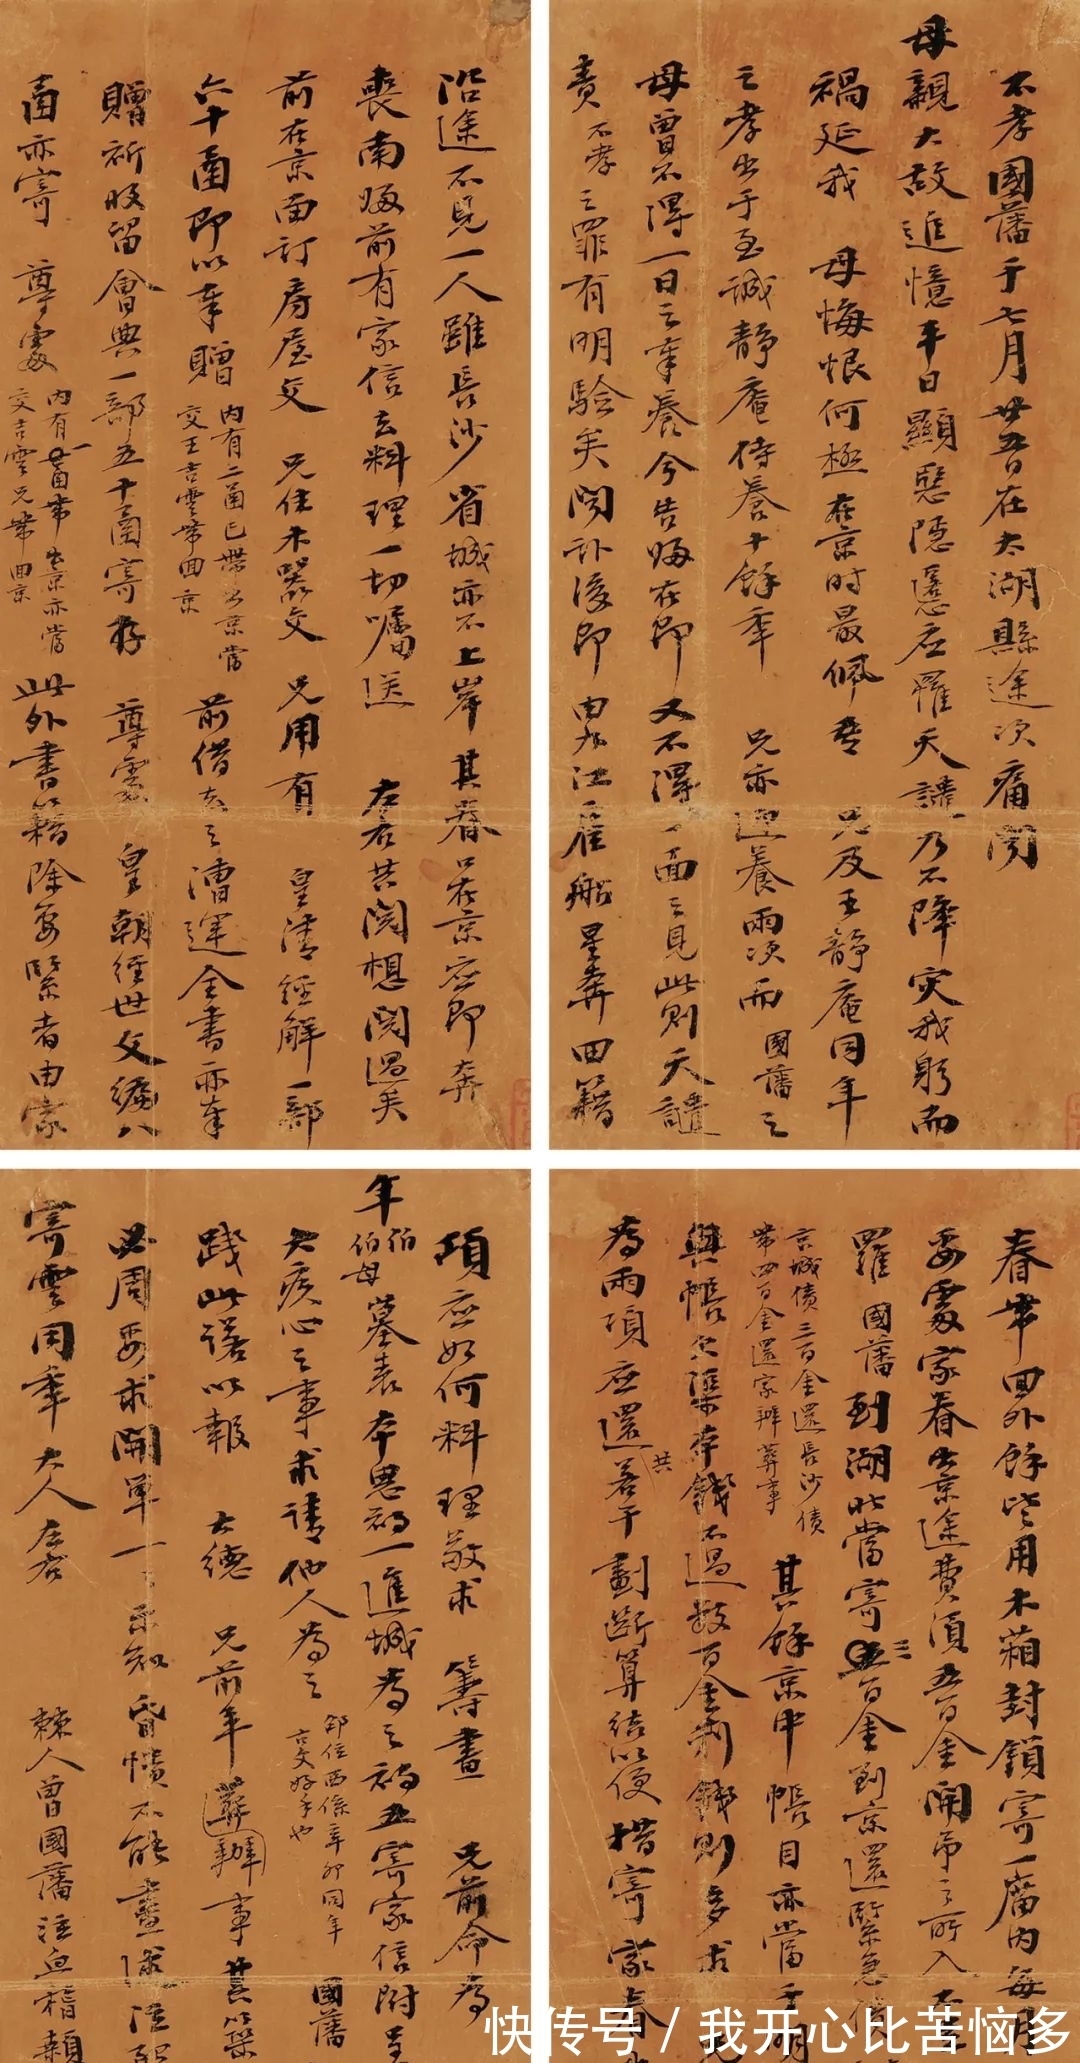 不孝國藩于七月廿五日在太湖縣途次痛聞
母親大故追憶平日顯愆隱慝应罹天譴乃不降灾我躬而
禍延我 母悔恨何極在京時最佩吾 兄及王静庵同年
之孝出于至誠静庵侍養十餘年 兄亦迎養兩次而 國藩之
母曾不得一日之奉養今告歸在即又不得一面之見此則天譴
責不孝之罪有明驗矣聞訃後即由九江雇船星奔回籍
沿途不見一人雖長沙省城亦不上岸其眷口在京应即奔
喪南歸前有家信去料理一切囑送 左右共閱想閱過矣
前在京面訂房屋交 兄住木器交 兄用有 皇清經解一部
六十圅即以奉贈 內有二圅已帶出京當交王吉雲帶回京 前借去之漕運全書亦奉
贈祈收留會典一部五十圅寄存 尊處 皇朝經世文編八
圅亦寄 尊處 內有一圅帶出京亦當交吉雲兄帶回京 此外書籍除要緊者由家
眷帶回外餘皆用木箱封鎖寄一廟內每月
要處家眷出京途費須五百金開吊之所入
羅 國藩到湖北當寄三百金到京還緊急債
京城債三百金還長沙債
帶四百金還家辦葬事 其餘京中帳目亦當于明
與帳欠渠本錢不過数百金利錢則多求 兄
為兩項应還共若干劃断算結以便措寄家眷
項应如何料理敬求 籌畫 兄前命為
年伯伯母墓表本思初一進城為之初五寄家信附呈
大疚心之事求請他人為之 邵位西係辛卯同年古文好手也 國藩
踐此諾以報 大德 兄前年辦事其以渠
必周要求開單一一示知昏憒不能盡
寄雲同年大人左右 棘人曾國藩泣血稽顙
快传号 / 我开心比苦恼多